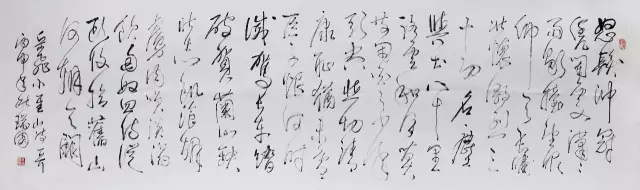 怒髮冲冠
瀟瀟
雨歇抬望眼
仰天長嘯
壯懷激烈三
十功名塵
與土八千里
路雲和月莫
等閒白了少年
頭空悲切靖
康恥猶未雪
臣子恨何時
滅駕長車踏
破賀蘭山缺
壯志飢餐胡
虜肉笑談渴
飲匈奴血待從
頭收拾舊山
河朝天闕
岳飛小重山詩一首
丙申年秋